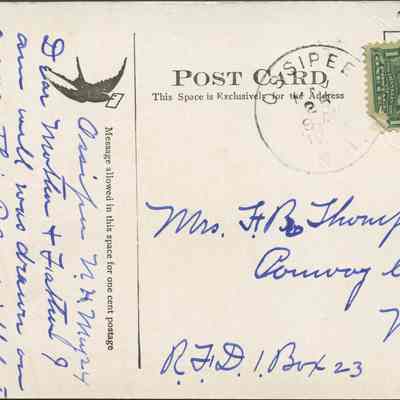 POST CARD
This Space is Exclusively for the Address
OSSIPEE
Message allowed in this space for one cent postage
Ossipee N.H. May 24
Dear Mother & Father I
am well was drawn on
Mrs. F. B. Thomp
Conway
R.F.D. 1 Box 23